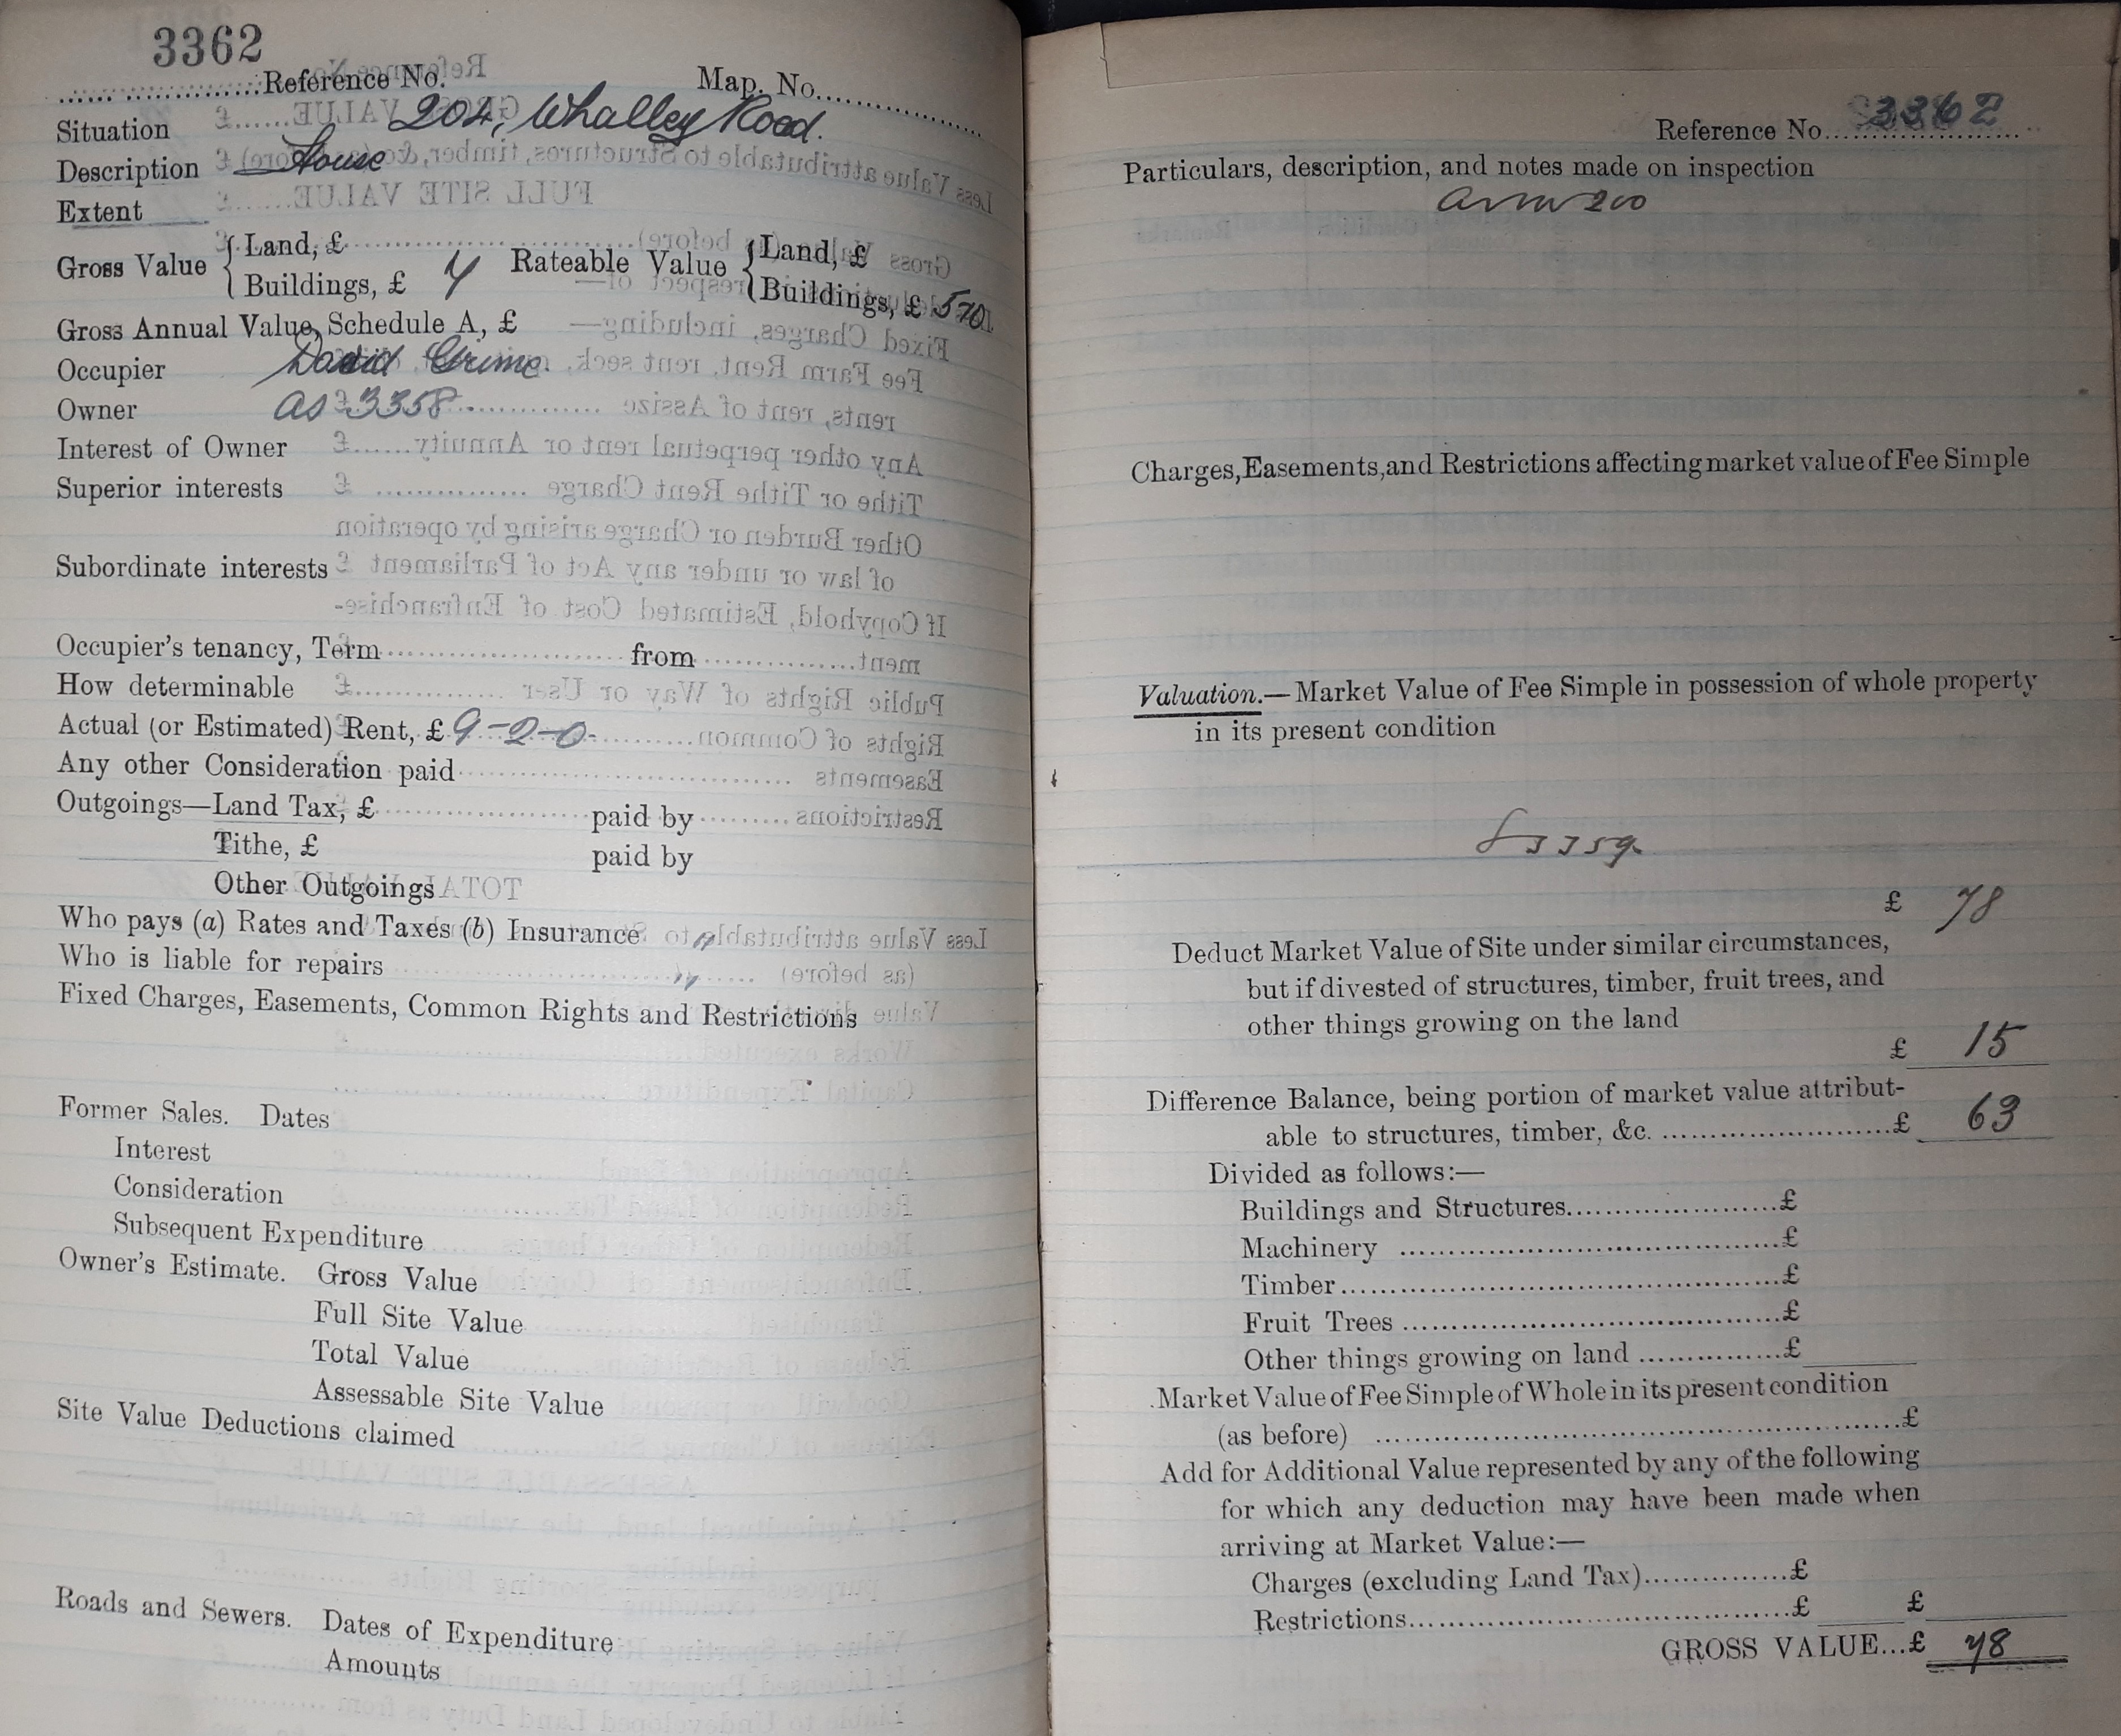 3362
Reference No. Map. No.
Situation 204, Whalley Road.
Description House
Extent
Gross Value { Land, £ Rateable Value { Land, £
Buildings, £ 7 Buildings, £ 5-10
Gross Annual Value, Schedule A, £
Occupier David Grime
Owner as 3358
Interest of Owner
Superior interests
Subordinate interests
Occupier's tenancy, Term from
How determinable
Actual (or Estimated) Rent, £ 9-2-0
Any other Consideration paid
Outgoings—Land Tax, £ paid by
Tithe, £ paid by
Other Outgoings
Who pays (a) Rates and Taxes (b) Insurance
Who is liable for repairs
Fixed Charges, Easements, Common Rights and Restrictions
Former Sales. Dates
Interest
Consideration
Subsequent Expenditure
Owner's Estimate. Gross Value
Full Site Value
Total Value
Assessable Site Value
Site Value Deductions claimed
Roads and Sewers. Dates of Expenditure
Amounts
Reference No. 3362
Particulars, description, and notes made on inspection
200
Charges, Easements, and Restrictions affecting market value of Fee Simple
Valuation.—Market Value of Fee Simple in possession of whole property
in its present condition
£ 78
Deduct Market Value of Site under similar circumstances,
but if divested of structures, timber, fruit trees, and
other things growing on the land
£ 15
Difference Balance, being portion of market value attribut-
able to structures, timber, &c. £ 63
Divided as follows:—
Buildings and Structures £
Machinery £
Timber £
Fruit Trees £
Other things growing on land £
Market Value of Fee Simple of Whole in its present condition
(as before) £
Add for Additional Value represented by any of the following
for which any deduction may have been made when
arriving at Market Value:—
Charges (excluding Land Tax) £
Restrictions £ £
GROSS VALUE...£ 78